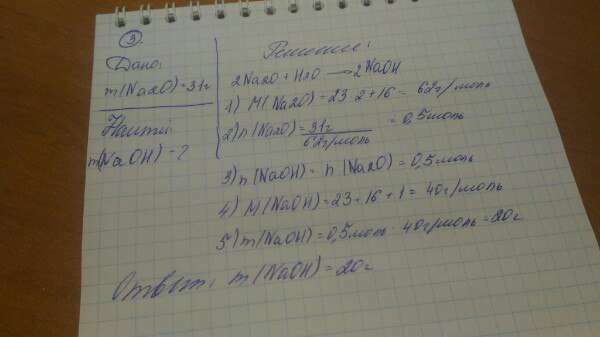 3.
Дано:
m(Na2O)=31г
Найти:
m(NaOH)-?
Решение:
2Na2O + H2O → 2NaOH
1) M(Na2O)=23·2+16= 62г/моль
2) n(Na2O)= 31г/62г/моль =0,5моль
3) n(NaOH)= n(Na2O)=0,5моль
4) M(NaOH)=23+16+1= 40г/моль
5) m(NaOH)=0,5моль·40г/моль=20г
Ответ: m(NaOH)=20г